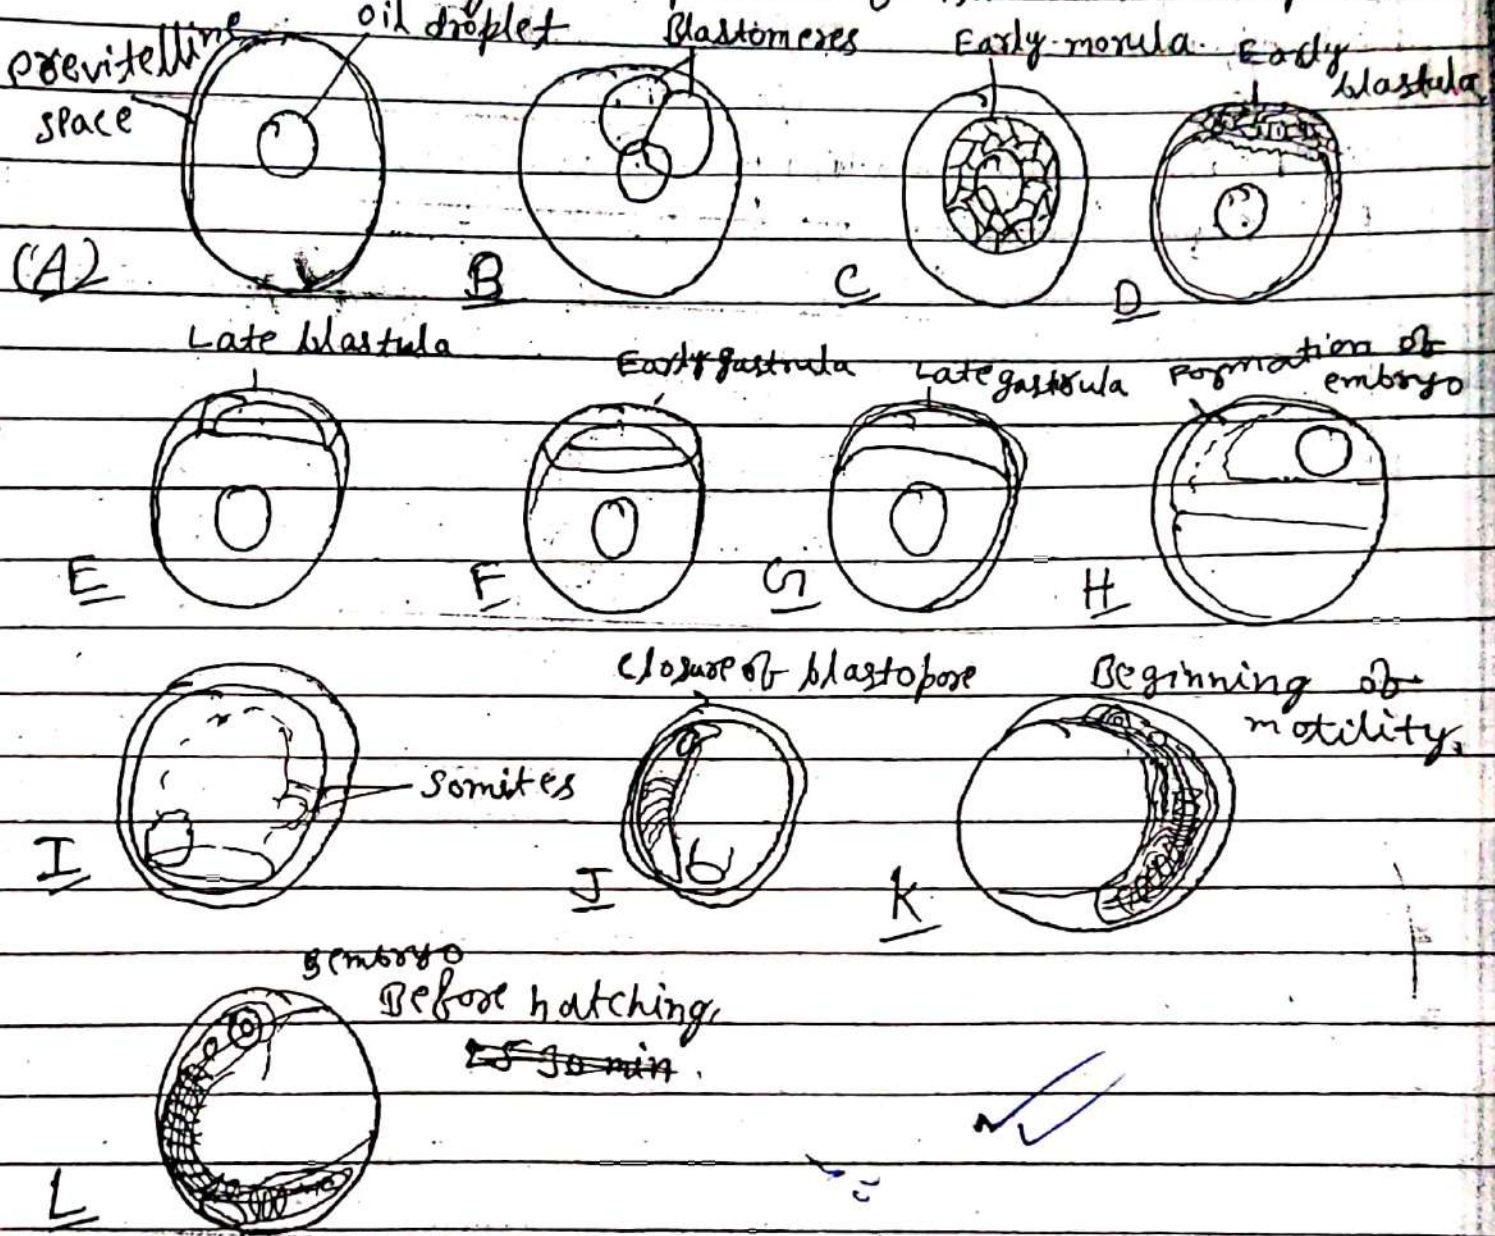 previtelline
space
oil droplet
Blastomeres
Early morula.
Early
blastula
(A)
B
C
D
Late blastula
Early gastrula
Late gastrula
Formation of
embryo
E
F
G
H
Somites
closure of blastopore
Beginning of
motility.
I
J
K
embryo
Before hatching,
L